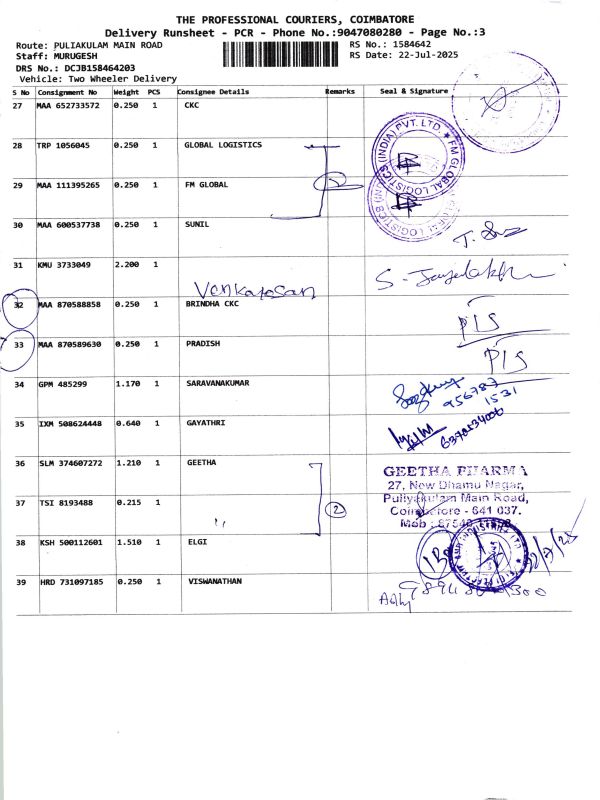 THE PROFESSIONAL COURIERS, COIMBATORE
Delivery Runsheet - PCR - Phone No.:9047080280 - Page No.:3
Route: PULIAKULAM MAIN ROAD RS No.: 1584642
Staff: MURUGESH RS Date: 22-Jul-2025
DRS No.: DCJB158464203
Vehicle: Two Wheeler Delivery
S No Consignment No Weight PCS Consignee Details Remarks Seal & Signature
27 MAA 652733572 0.250 1 CKC
28 TRP 1056045 0.250 1 GLOBAL LOGISTICS
29 MAA 111395265 0.250 1 FM GLOBAL 2
FM GLOBAL LOGISTICS (INDIA) PVT. LTD.
30 MAA 600537738 0.250 1 SUNIL
31 KMU 3733049 2.200 1
Venkatasan
32 MAA 870588858 0.250 1 BRINDHA CKC PIS
33 MAA 870589630 0.250 1 PRADISH PIS
34 GPM 485299 1.170 1 SARAVANAKUMAR 956787
1531
35 IXM 508624448 0.640 1 GAYATHRI
36 SLM 374607272 1.210 1 GEETHA
GEETHA PHARMA
27, New Dhamu Nagar,
Puliyakulam Main Road,
Coimbatore - 641 037.
Mob :
37 TSI 8193488 0.215 1 " 2
38 KSH 500112601 1.510 1 ELGI
39 HRD 731097185 0.250 1 VISWANATHAN